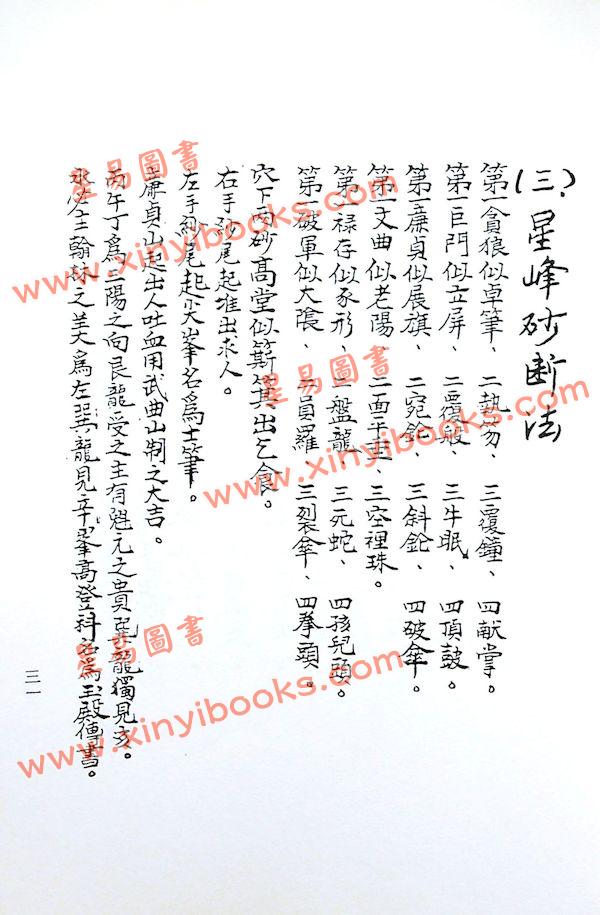 (三)、星峰砂断法
第一貪狼似卓筆、二執笏、三覆鐘、四献掌。
第一巨門似立屏、二覆般、三牛眠、四頂鼓。
第一廉貞似展旗、二宛鉈、三斜鉈、四破傘。
第一文曲似老陽、二面平田、三空裡珠。
第一禄存似豕形、二盤龍、三死蛇、四孩兒頭。
第一破軍似大隕、二員羅、三裂傘、四拳頭。
穴下内砂高堂似箕出乞食。
右手砂尾起堆出求人。
左手砂尾起尖峯名為士筆。
廉貞山起出人吐血用武曲山制之大吉。
丙午丁為三陽之向艮龍受之主有魁元之貴巽龍獨見亥。
永必主翰林之美為左巽龍見辛峯高登科名為玉殿傳書。
三一
星易圖書
www.xinyibooks.com
星易圖書
www.xinyibooks.com
星易圖書
www.xinyibooks.com